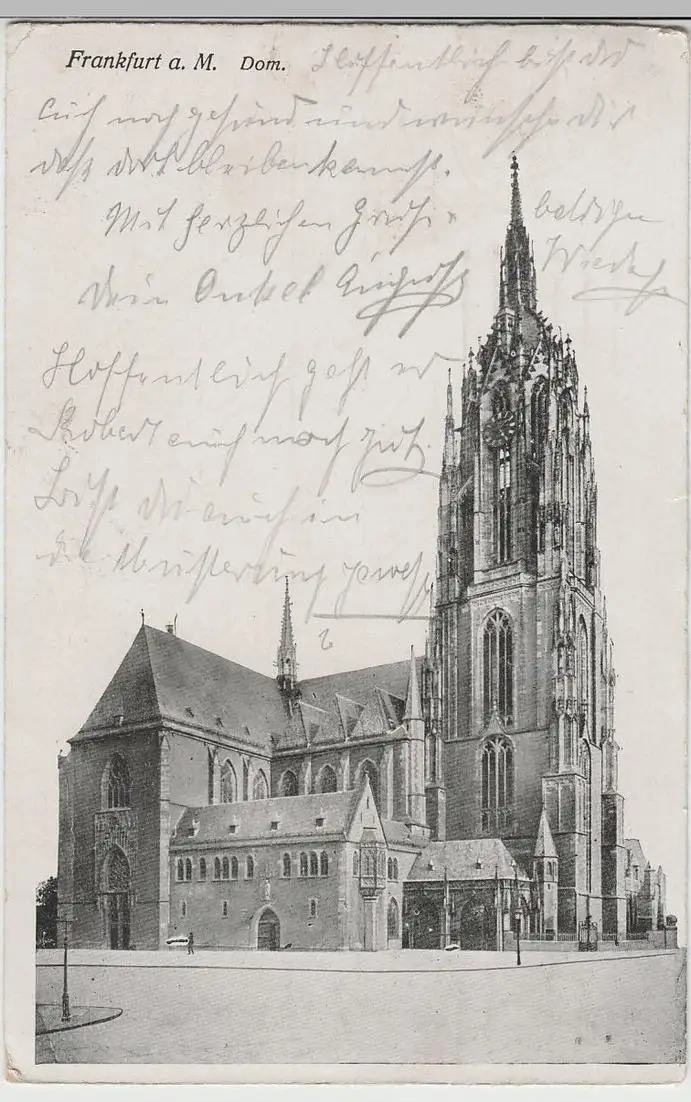 Frankfurt a. M. Dom.
Hoffentlich bist du
auch noch gesund und wünsche dir
daß dort bleiben kannst.
Mit herzlichen Grüße
baldigen
Wiedersehn
dein Onkel August
Hoffentlich geht es
Robert auch noch gut.
Bist du auch in
die Musterung gewest